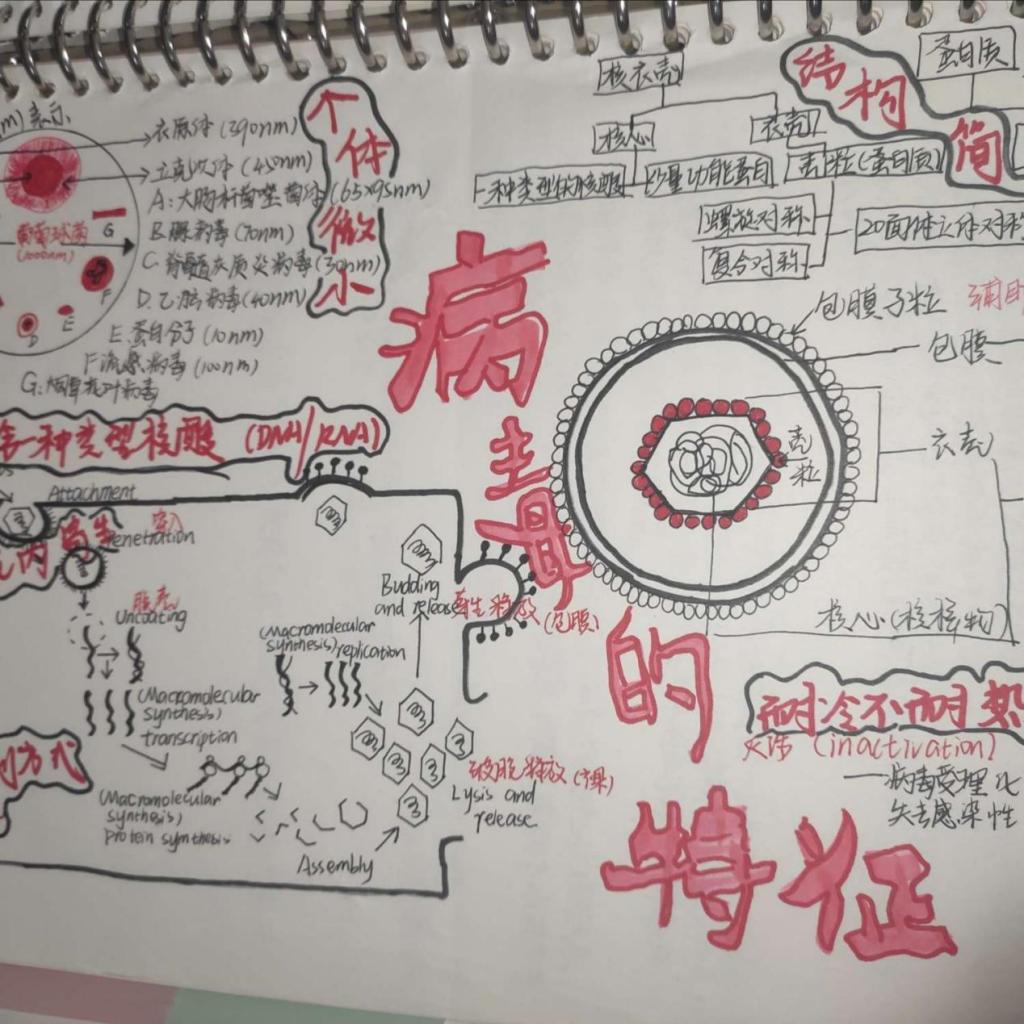 表示
衣原体(390nm)
立克次体(450nm)
A:大肠杆菌噬菌体(65×95nm)
B.痘病毒(70nm)
C.脊髓灰质炎病毒(30nm)
D.乙脑病毒(40nm)
E.蛋白分子(10nm)
F流感病毒(100nm)
G:烟草花叶病毒
葡萄球菌
(1000nm)
G
F
E
D
个体微小
含一种类型核酸(DNA/RNA)
病毒的特征
核衣壳
核心
衣壳
一种类型的核酸
少量功能蛋白
壳粒(蛋白质
螺旋对称
复合对称
20面体立体对称
结构简
蛋白质
包膜子粒
包膜
壳粒
衣壳
核心(核
Attachment
Penetration
穿入
脱壳
Uncoating
(Macromolecular
synthesis)
transcription
(Macromolecular
synthesis)
Protein synthesis
Assembly
(Macromolecular
synthesis)replication
Budding
and release
芽生释放(包膜)
破胞释放(裸)
Lysis and
release
内寄生
制方式
耐冷不耐热
灭活(inactivation)
—病毒受理化
失去感染性